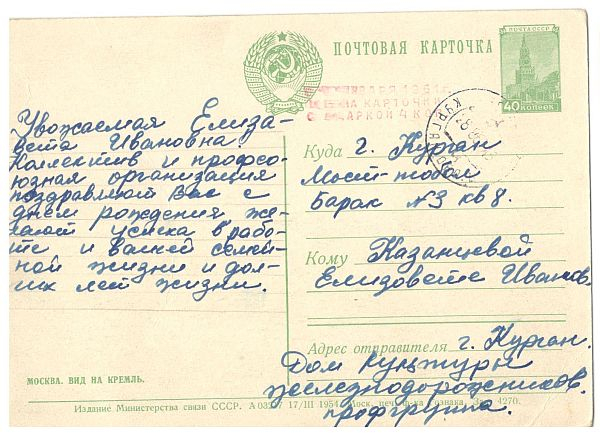 ПОЧТОВАЯ КАРТОЧКА
ПОЧТА СССР
40 КОПЕЕК
ЯНВАРЯ 1961
НА КАРТОЧКИ
МАРКОЙ 4 К
КУРГАН
Уважаемая Елиза-
вета Ивановна
Коллектив и профсо-
юзная организация
поздравляют Вас с
днем рождения же-
лают успеха в рабо-
те и вашей семей-
ной жизни и дол-
гих лет жизни.
МОСКВА. ВИД НА КРЕМЛЬ.
Куда г. Курган
Мост-тобол
барак №3 кв 8.
Кому Казанцевой
Елизовете Иванов.
Адрес отправителя г. Курган.
Дом культуры
железнодорожников.
профгруппа.
Издание Министерства связи СССР. 17/III 1954 Моск. Гознака. 4270.